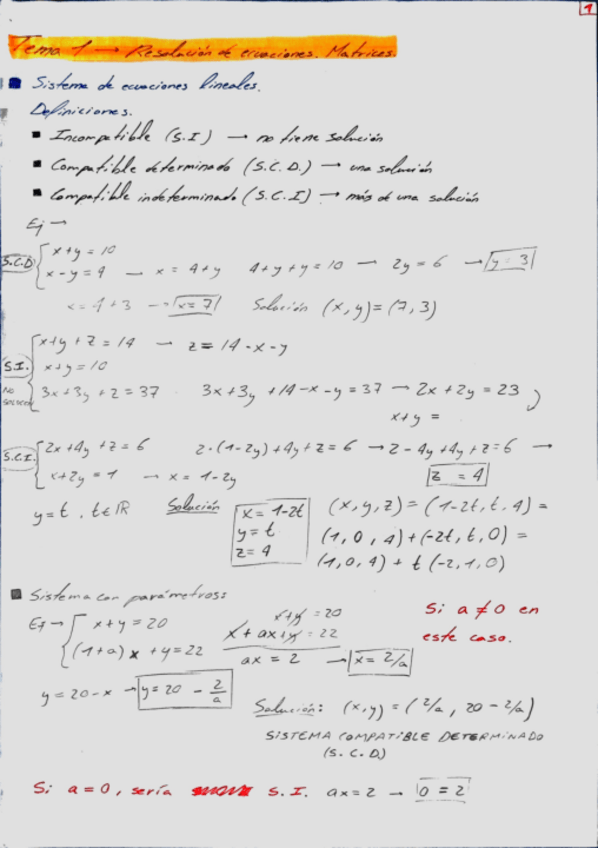 1
Tema 1 → Resolución de ecuaciones. Matrices.
■ Sistema de ecuaciones lineales.
Definiciones.
■ Incompatible (S.I) → no tiene solución
■ Compatible determinado (S.C.D.) → una solución
■ Compatible indeterminado (S.C.I) → más de una solución
Ej →
S.C.D { x+y = 10
x-y = 4 → x = 4+y 4+y+y = 10 → 2y = 6 → y = 3
x = 4+3 → x = 7 Solución (x,y) = (7,3)
S.I. { x+y+z = 14 → z = 14-x-y
x+y = 10
NO SOLUCIÓN 3x+3y+z = 37 3x+3y+14-x-y = 37 → 2x+2y = 23
x+y =
S.C.I. { 2x+4y+z = 6 2·(1-2y)+4y+z = 6 → 2-4y+4y+z = 6 →
x+2y = 1 → x = 1-2y z = 4
y = t, t∈ℝ Solución x = 1-2t (x,y,z) = (1-2t, t, 4) =
y = t (1,0,4)+(-2t,t,0) =
z = 4 (1,0,4) + t(-2,1,0)
■ Sistema con parámetros:
Ej → { x+y = 20 x+y = 20 Si a ≠ 0 en
(1+a)x + y = 22 x+ax+y = 22 este caso.
ax = 2 → x = 2/a
y = 20-x → y = 20 - 2/a
Solución: (x,y) = (2/a, 20-2/a)
SISTEMA COMPATIBLE DETERMINADO
(S.C.D)
Si a = 0, sería S.I. ax = 2 → 0 = 2